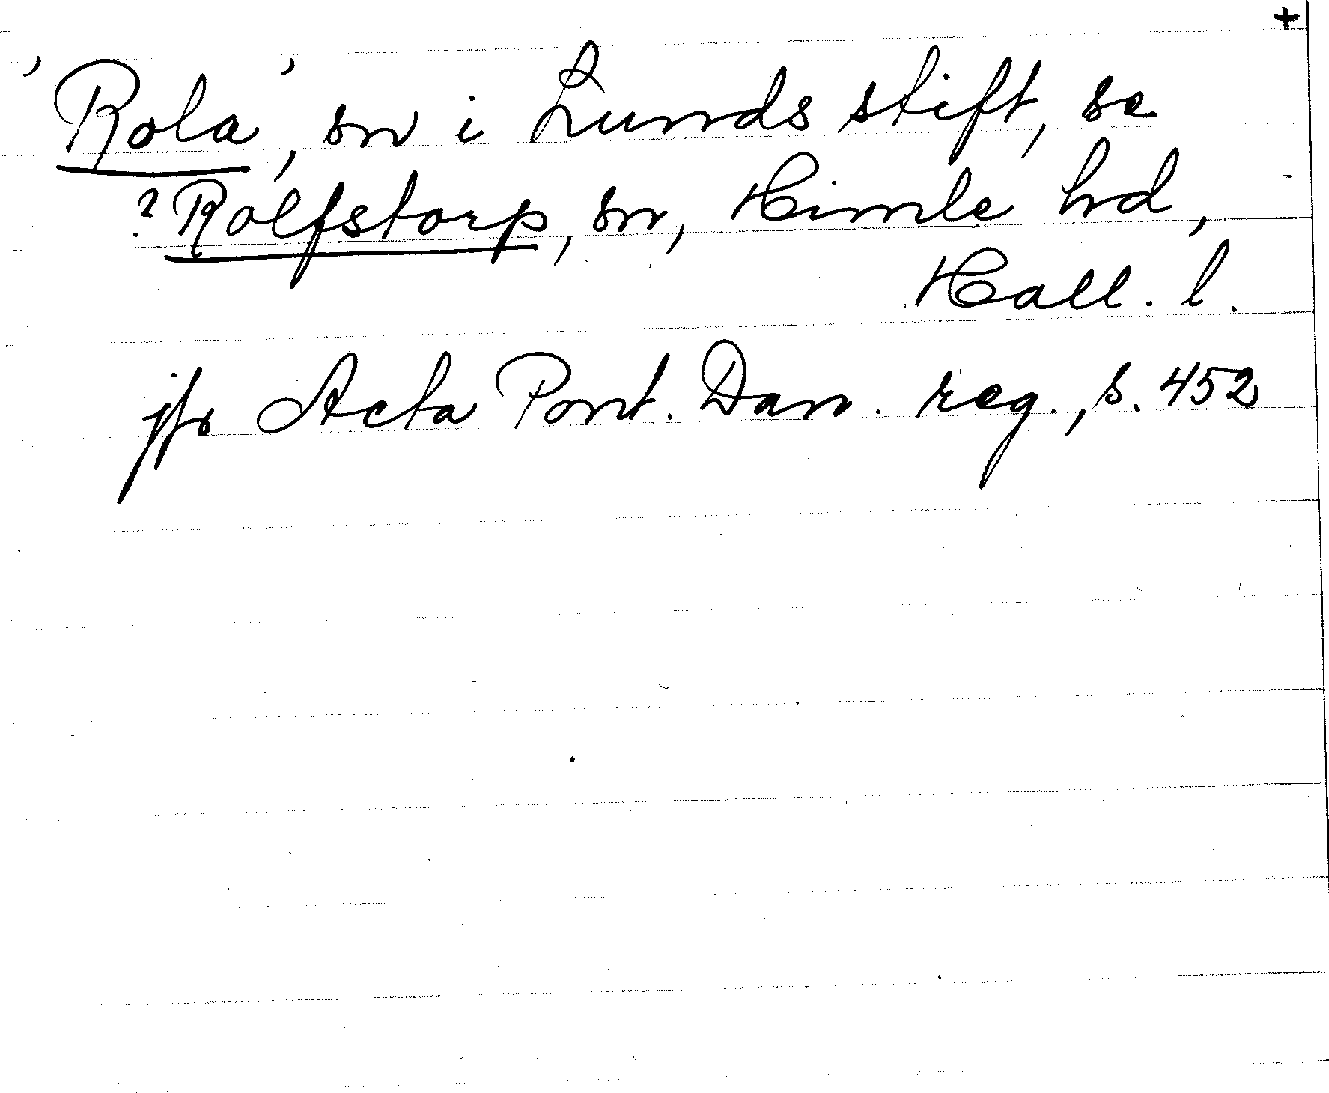 +
'Rola', sn i Lunds stift, se
? Rolfstorp, sn, Himle hd,
Hall. l.
jfr Acta Pont. Dan. reg., s. 452